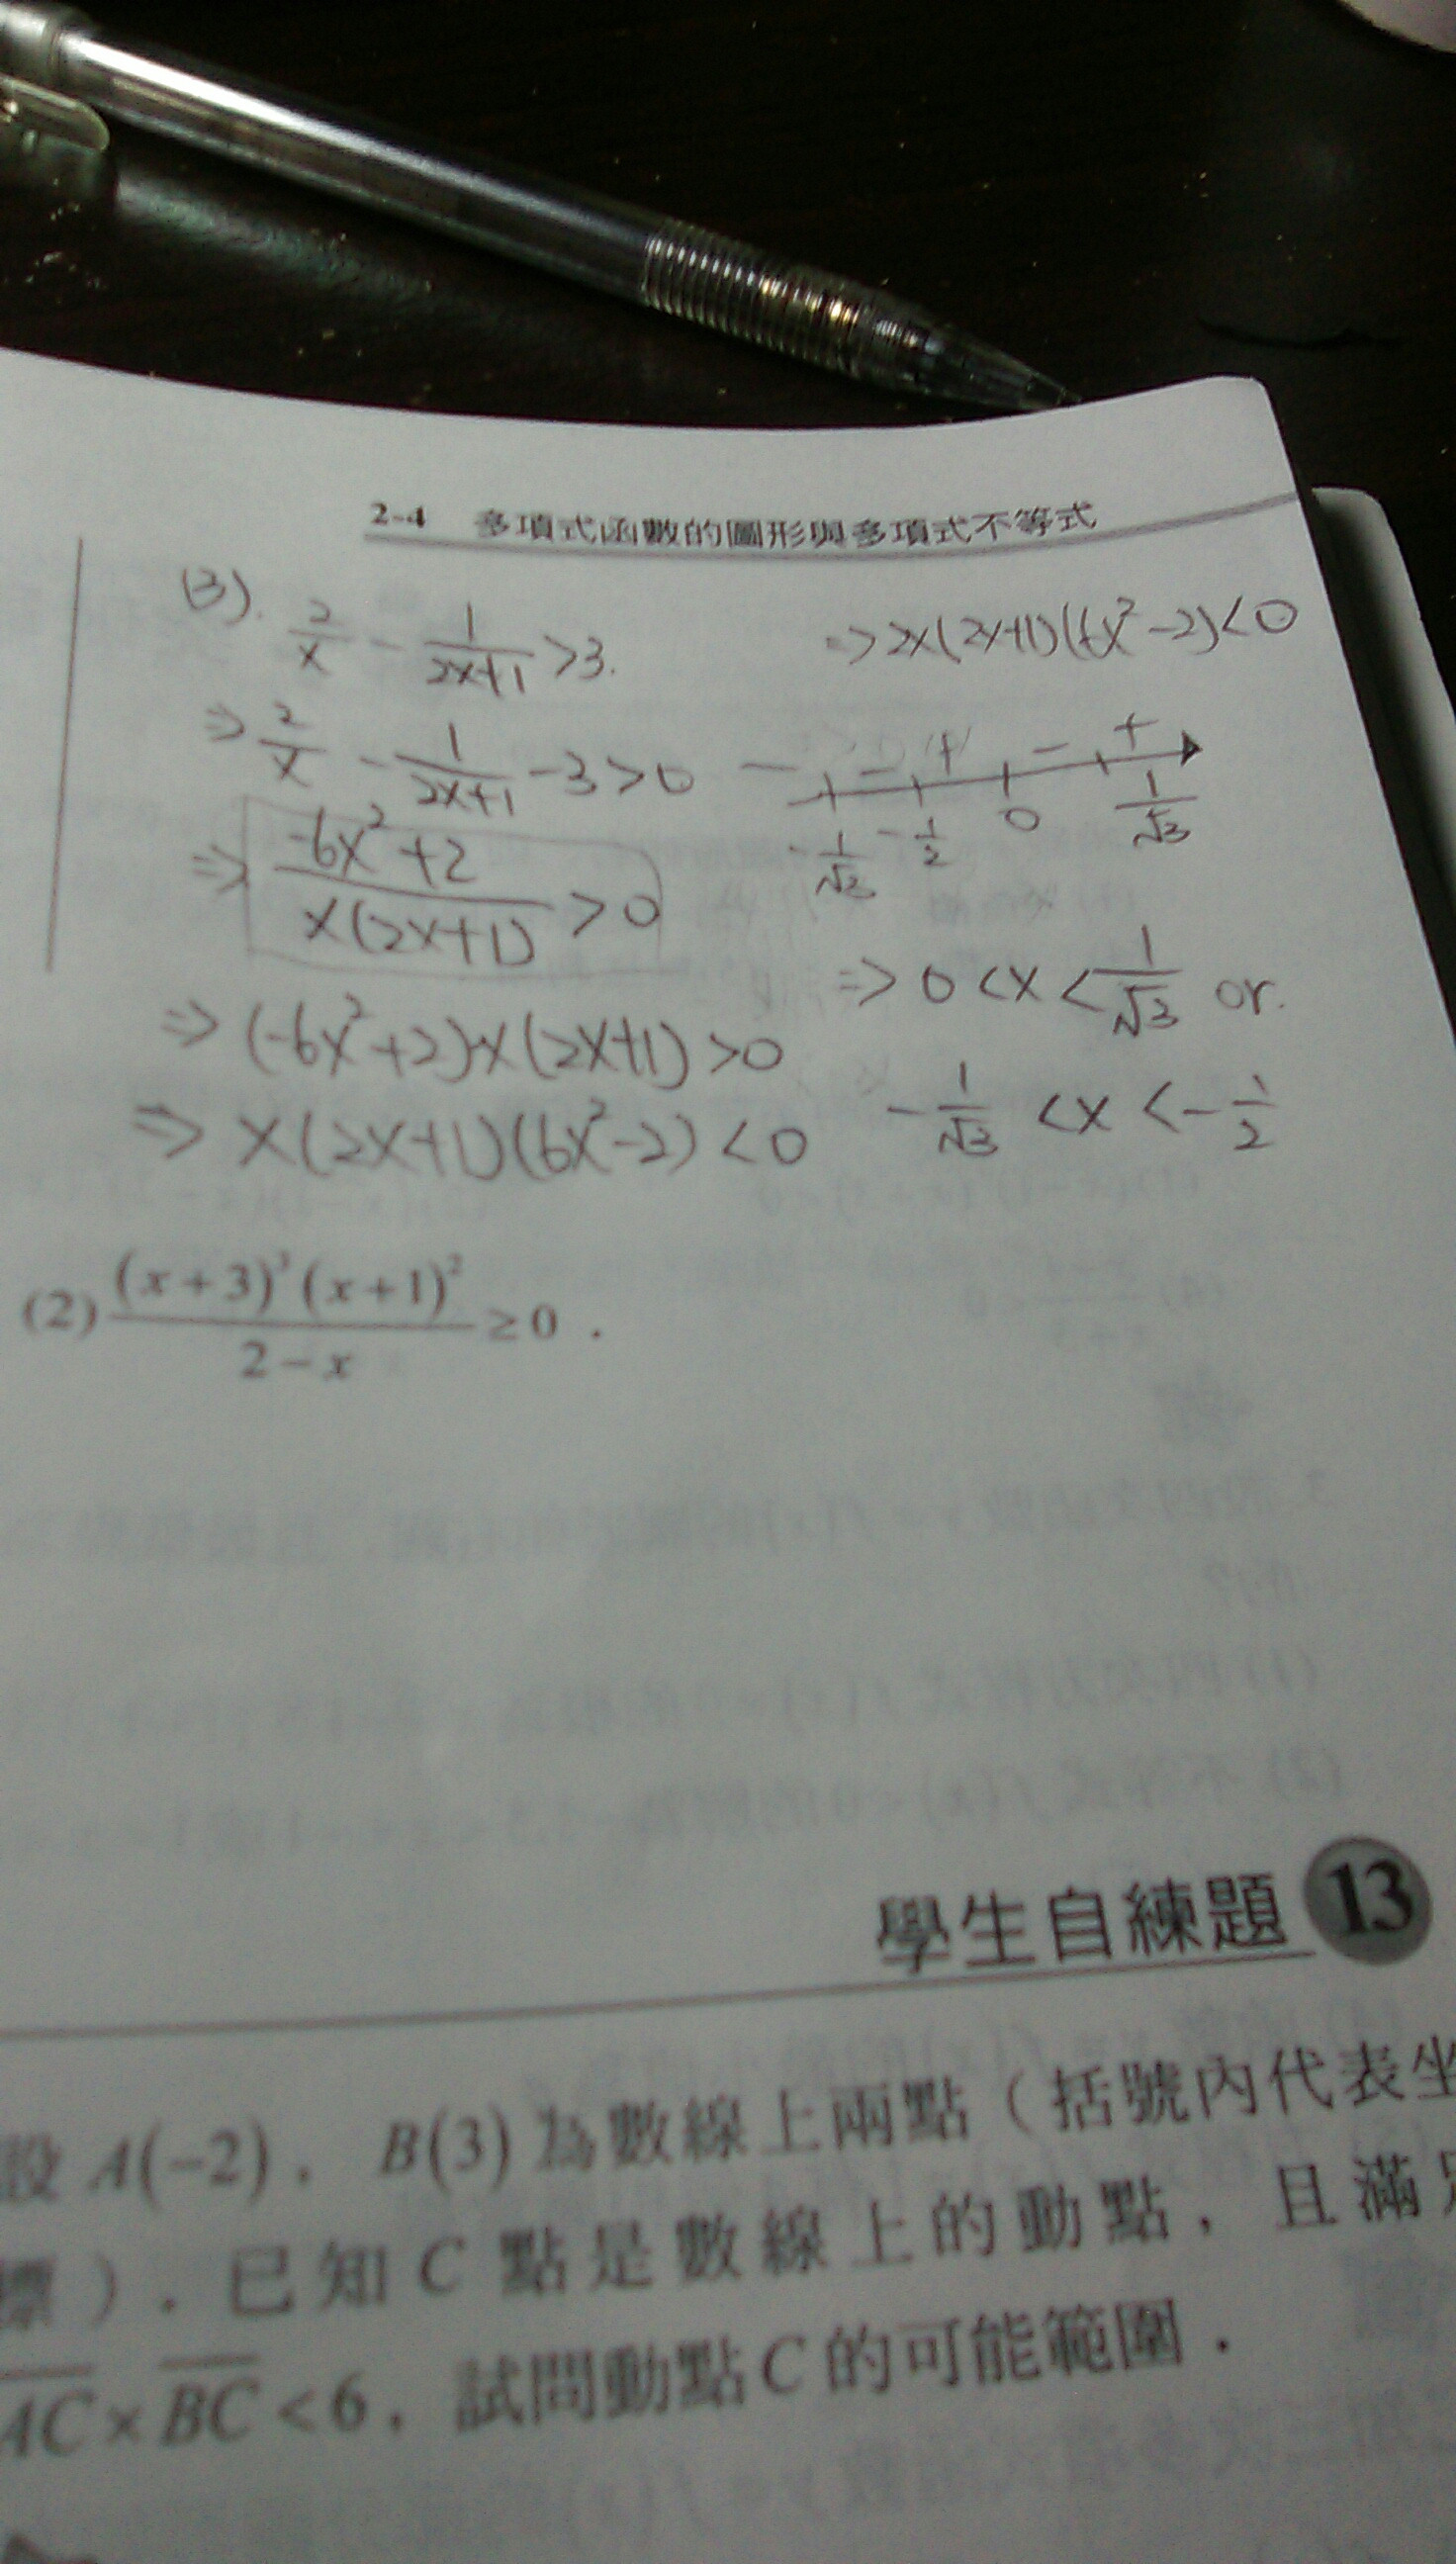 2-4 多項式函數的圖形與多項式不等式
(3). 2/x - 1/(2x+1) >3.
⇒ 2/x - 1/(2x+1) -3>0
⇒ (-6x²+2)/(x(2x+1)) >0
⇒ (-6x²+2)·x(2x+1)>0
⇒ x(2x+1)(6x²-2)<0
⇒2x(2x+1)(6x²-2)<0
- - + - +
-1/√3 -1/2 0 1/√3
⇒ 0<x<1/√3 or.
-1/√3 <x<-1/2
(2) (x+3)³(x+1)²/(2-x) ≥0．
學生自練題 13
設 A(-2)，B(3)為數線上兩點（括號內代表坐
標）．已知 C 點是數線上的動點，且滿足
AC×BC<6，試問動點C的可能範圍．